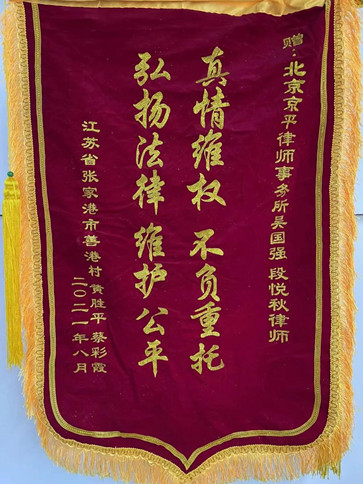 赠：北京京平律师事务所吴国强 段悦秋律师
真情维权 不负重托
弘扬法律 维护公平
江苏省张家港市善港村 黄胜平 蔡彩霞
二〇二一年八月